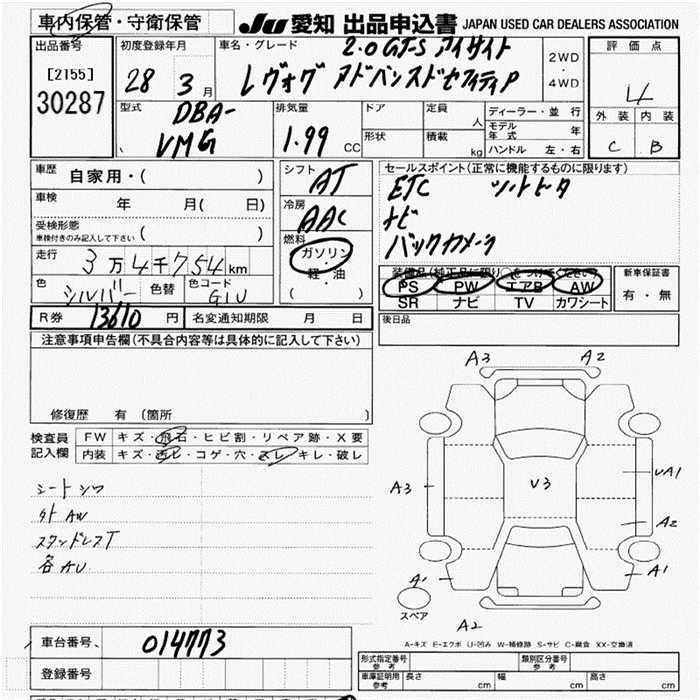 車内保管・守衛保管 JU 愛知 出品申込書 JAPAN USED CAR DEALERS ASSOCIATION
出品番号
[2155]
30287
初度登録年月
28 3月
車名・グレード
2.0 GT-S アイサイト
レヴォーグ アドバンスドセフティP
2WD
・
4WD
評価点
4
外装 内装
C B
型式
DBA-
VMG
排気量
1.99 CC
ドア
定員
人
形状
積載
kg
ディーラー・並行
モデル年式 年
ハンドル 左・右
車歴 自家用・( )
車検 年 月( 日)
受検形態
車検付きのみ記入して下さい ( )
走行 3万4千754km
色 シルバー 色替 色コード G1U
R券 13610 円 名変通知期限 月 日
シフト
AT
冷房
AAC
燃料
ガソリン
・
軽・油
( )
セールスポイント(正常に機能するものに限ります)
ETC シートヒータ
ナビ
バックカメラ
装備品(純正品に限り○をつけてください)
PS PW エアB AW
SR ナビ TV カワシート
新車保証書
有・無
後日品
注意事項申告欄(不具合内容等は具体的に記入して下さい)
修復歴 有 (箇所 )
検査員記入欄
FW キズ・飛石・ヒビ割・リペア跡・X要
内装 キズ・汚レ・コゲ・穴・スレ・キレ・破レ
シートシワ
外 AW
スタッドレスT
各AU
A3 A2
A3 V3 UA1
A2
A1 A1
スペア
A2
A-キズ E-エクボ U-凹み W-補修跡 S-サビ C-腐食 XX-交換済
車台番号 014773
登録番号
形式指定番号 参考 類別区分番号 参考
車庫証明用 参考 長さ cm 幅 cm 高さ cm